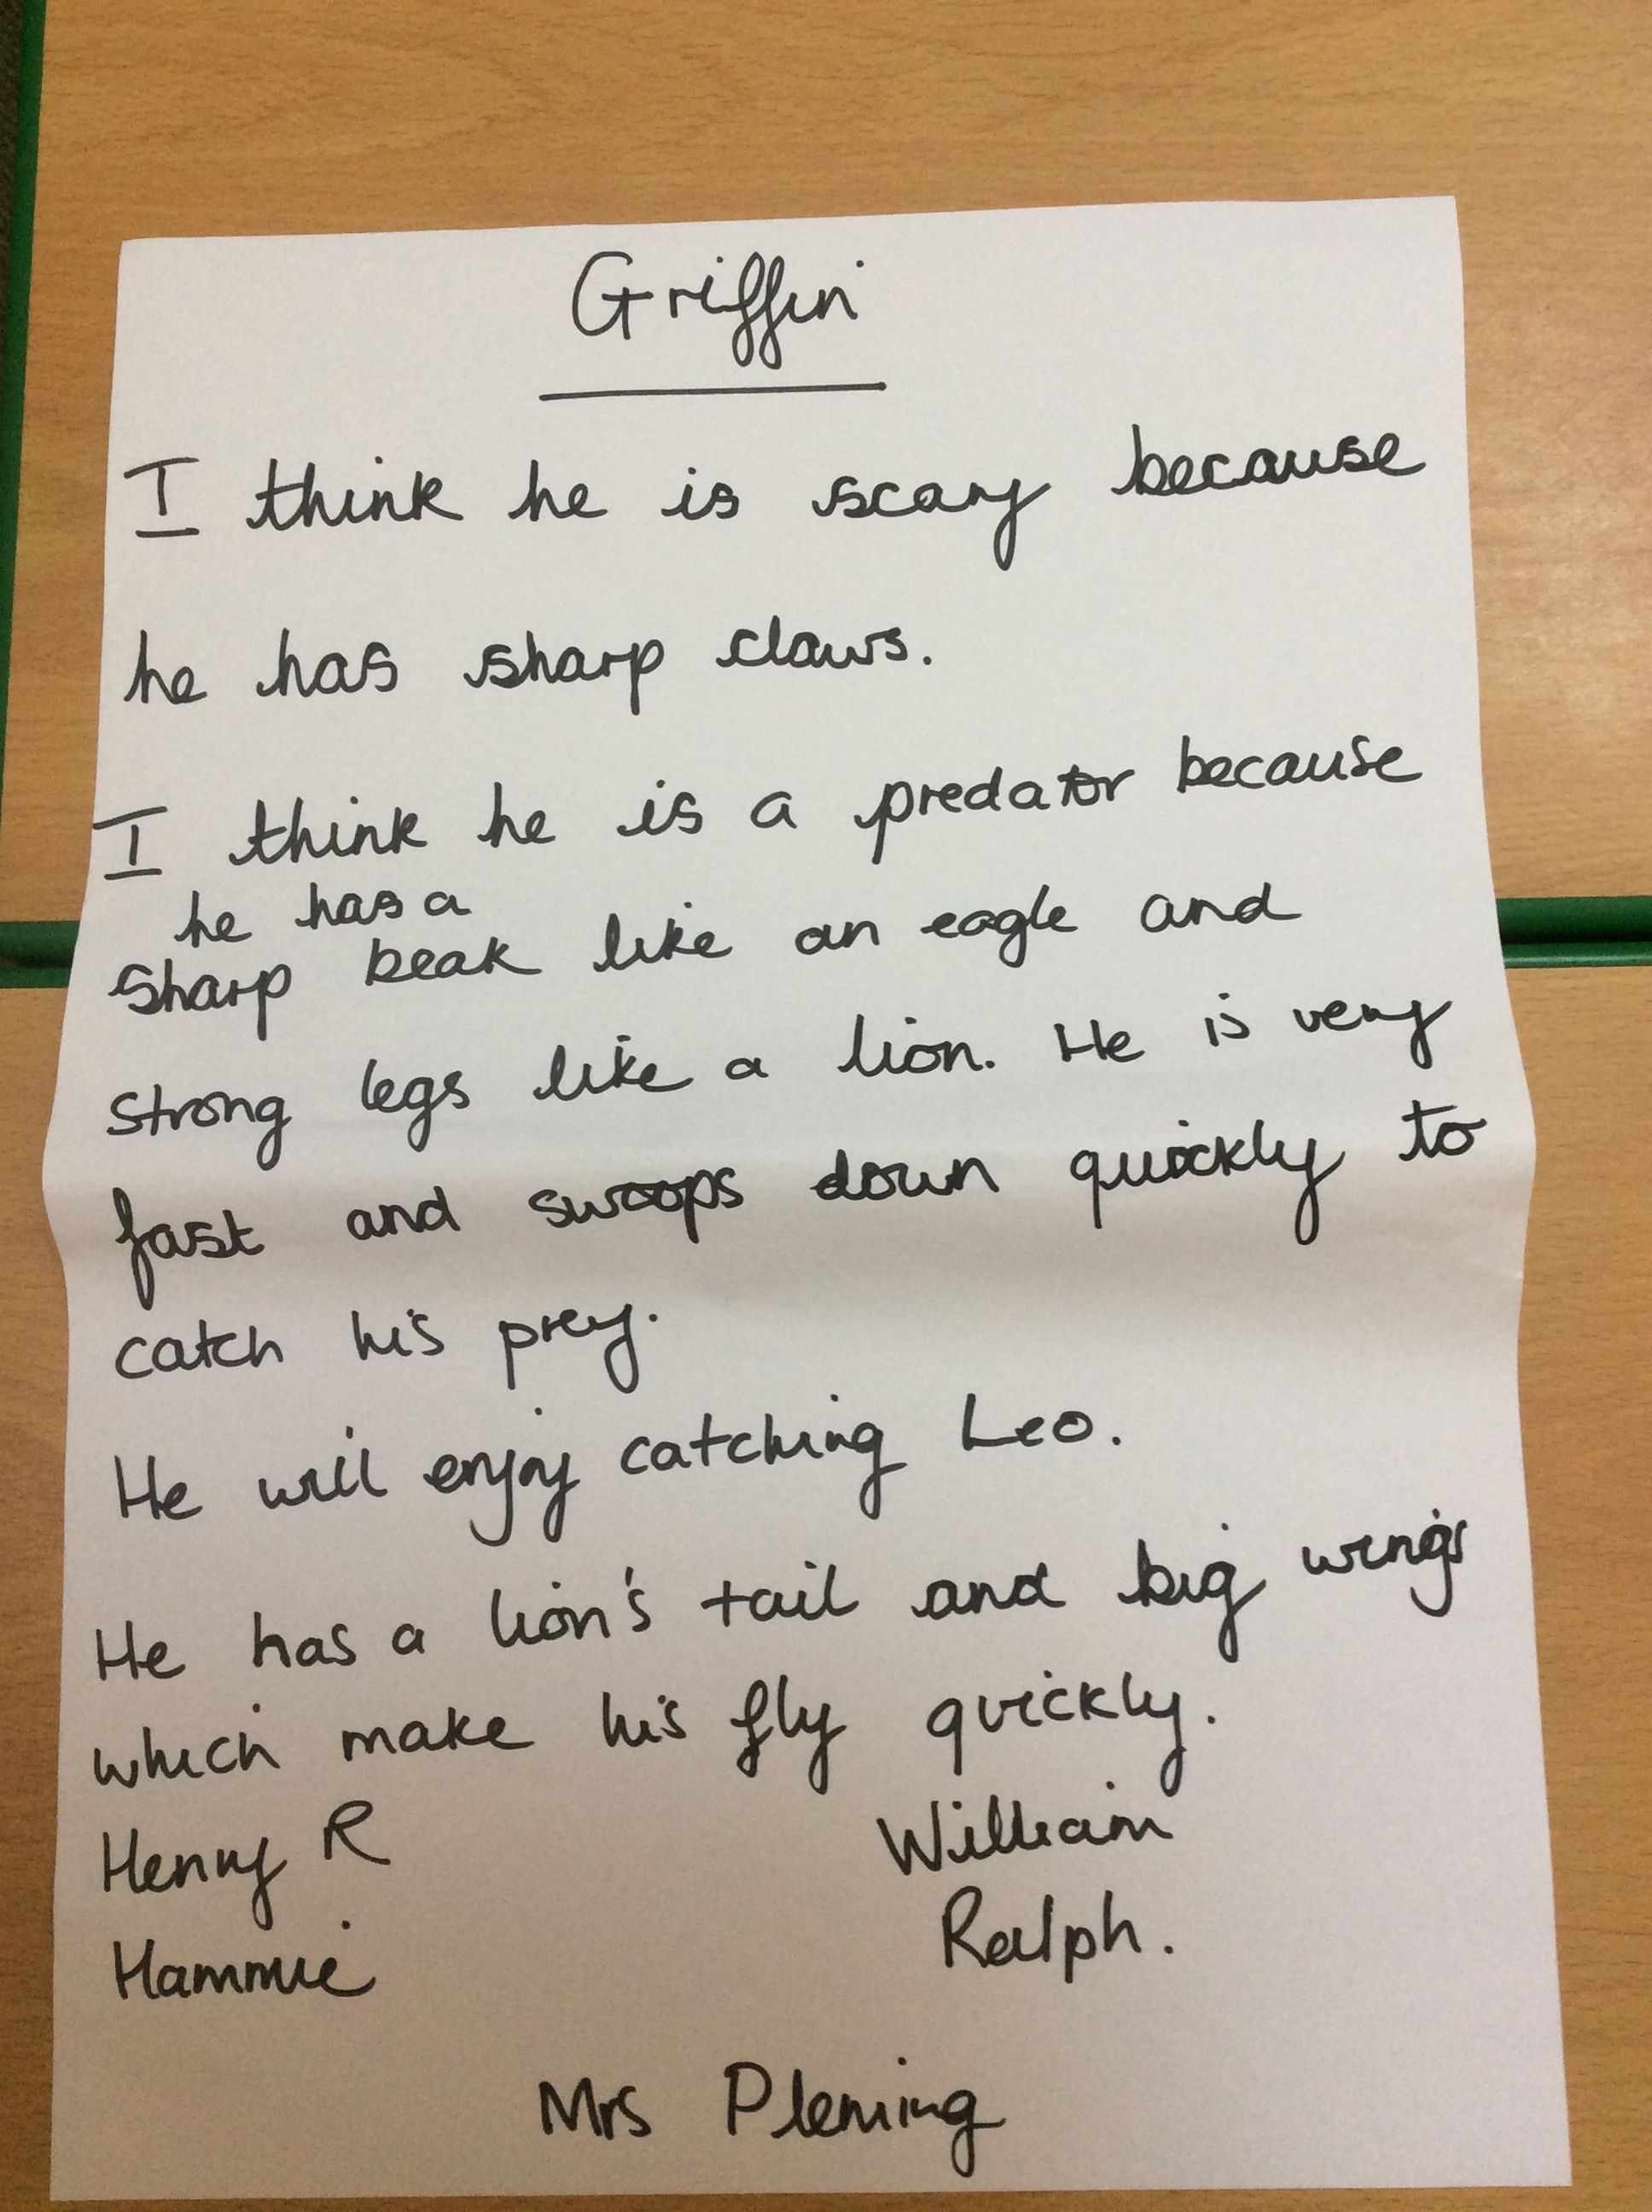 Griffin
I think he is scary because
he has sharp claws.
I think he is a predator because
he has a
sharp beak like an eagle and
strong legs like a lion. He is very
fast and swoops down quickly to
catch his prey.
He will enjoy catching Leo.
He has a lion's tail and big wings
which make his fly quickly.
Henry R
William
Hammie
Ralph.
Mrs Pleming